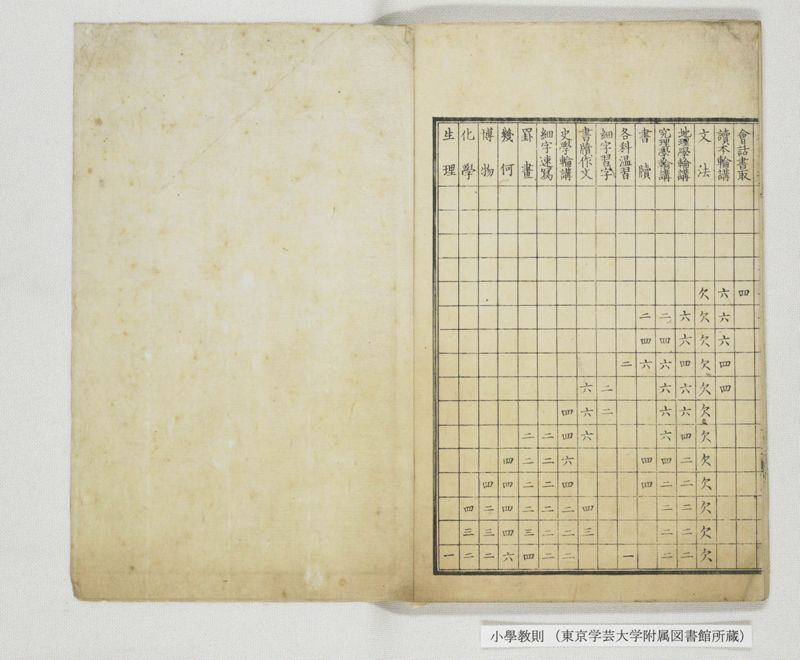 會話書取 四
讀本輪講 六 六 六 四 四
文法 欠 欠 欠 欠 欠 欠 欠 欠 欠 欠 欠 欠
地理學輪講 六 六 四 六 六 四 二 二 二 二 二
究理學輪講 二 四 六 六 六 六 四 二 二 二 二
書牘 二 四 六 四 四
各科温習 二 一
細字習字 二 二
書牘作文 六 六 六 四 三
史學輪講 四 四 六 四 二 二 二
細字速寫 二 二 二 二 二 二
罫畫 二 二 二 二 三 四
幾何 四 四 四 四 六
博物 四 二 三 二
化學 四 三 二
生理 一
小學教則 （東京学芸大学附属図書館所蔵）